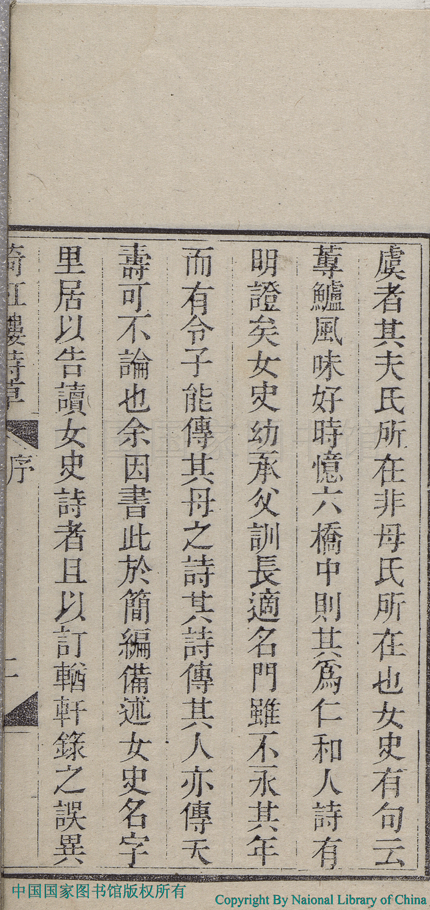 虞者其夫氏所在非母氏所在也女史有句云
蓴鱸風味好時憶六橋中則其為仁和人詩有
明證矣女史幼承父訓長適名門雖不永其年
而有令子能傳其母之詩其詩傳其人亦傳天
壽可不論也余因書此於簡編備述女史名字
里居以告讀女史詩者且以訂輶軒錄之誤異
紅樓詩草
序
二
中国国家图书馆版权所有
Copyright By Naional Library of China